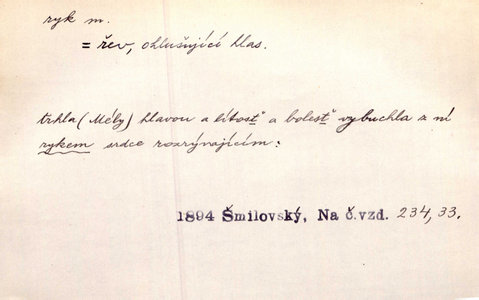 ryk m.
= řev, ohlušující hlas.
trhla (Mély) hlavou a lítosť a bolesť vybuchla z ní
rykem srdce rozrývajícím:
1894 Šmilovský, Na č.vzd. 234,33.